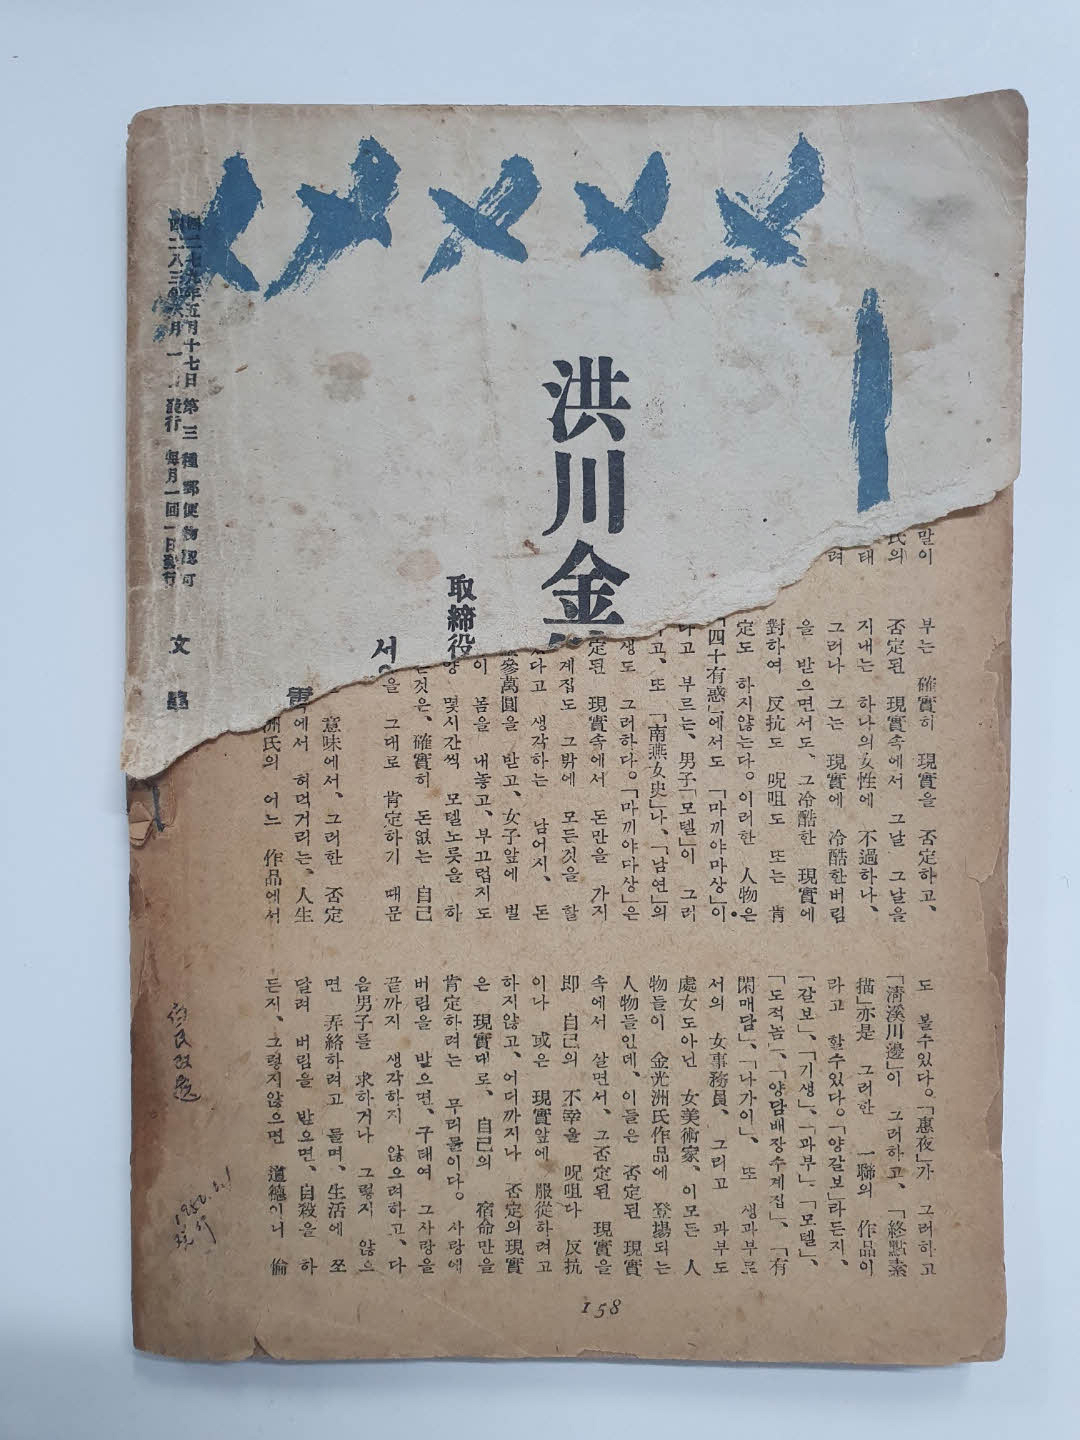 四二七九年五月十七日 第三種郵便物認可
四二八三年六月一日發行 每月一回一日發行
文學
洪川金
取締役
서
말이
氏의
태
려
부는 確實히 現實을 否定하고、
否定된 現實속에서 그날 그날을
지내는 하나의女性에 不過하나、
그러나 그는 現實에 冷酷한버림
을 받으면서도、그冷酷한 現實에
對하여 反抗도 呪咀도 또는 肯
定도 하지않는다。이러한 人物은
「四十有惑」에서도 「마끼야마상」이
라고 부르는、男子「모델」이 그러
고、또「南燕女史」나、「남연」의
생도 그러하다。「마끼야다상」은
定된 現實속에서 돈만을 가지
계집도 그밖에 모든것을 할
있다고 생각하는 남어지、돈
參萬圓을 받고、女子앞에 벌
이 몸을 내놓고、부끄럽지도
양 몇시간씩 모델노릇을 하
는것은、確實히 돈없는 自己
을 그대로 肯定하기 때문
意味에서、그러한 否定
에서 허먹거리는、人生
洲氏의 어느 作品에서
도 볼수있다。「惠夜」가 그러하고
「淸溪川邊」이 그러하고、「終點素
描」亦是 그러한 一聯의 作品이
라고 할수있다。「양갈보」라든지、
「갈보」、「기생」、「과부」、「모델」、
「도적놈」、「양담배장수계집」、「有
閑매담」、「나가이」、또 생과부로
서의 女事務員、그리고 과부도
處女도아닌 女美術家、이모든 人
物들이 金光洲氏作品에 登場되는
人物들인데、이들은 否定된 現實
속에서 살면서、그否定된 現實을
即 自己의 不幸을 呪咀다 反抗
이나 或은 現實앞에 服從하려고
하지않고、어디까지나 否定의現實
은 現實대로、自己의 宿命만을
肯定하려는 무리들이다。사랑에
버림을 받으면、구태여 그사랑을
끝까지 생각하지 않으려하고、다
음男子를 求하거나 그렇지 않으
면 弄絡하려고 들며、生活에 쪼
달려 버림을 받으면、自殺을 하
든지、그렇지않으면 道德이니 倫
158